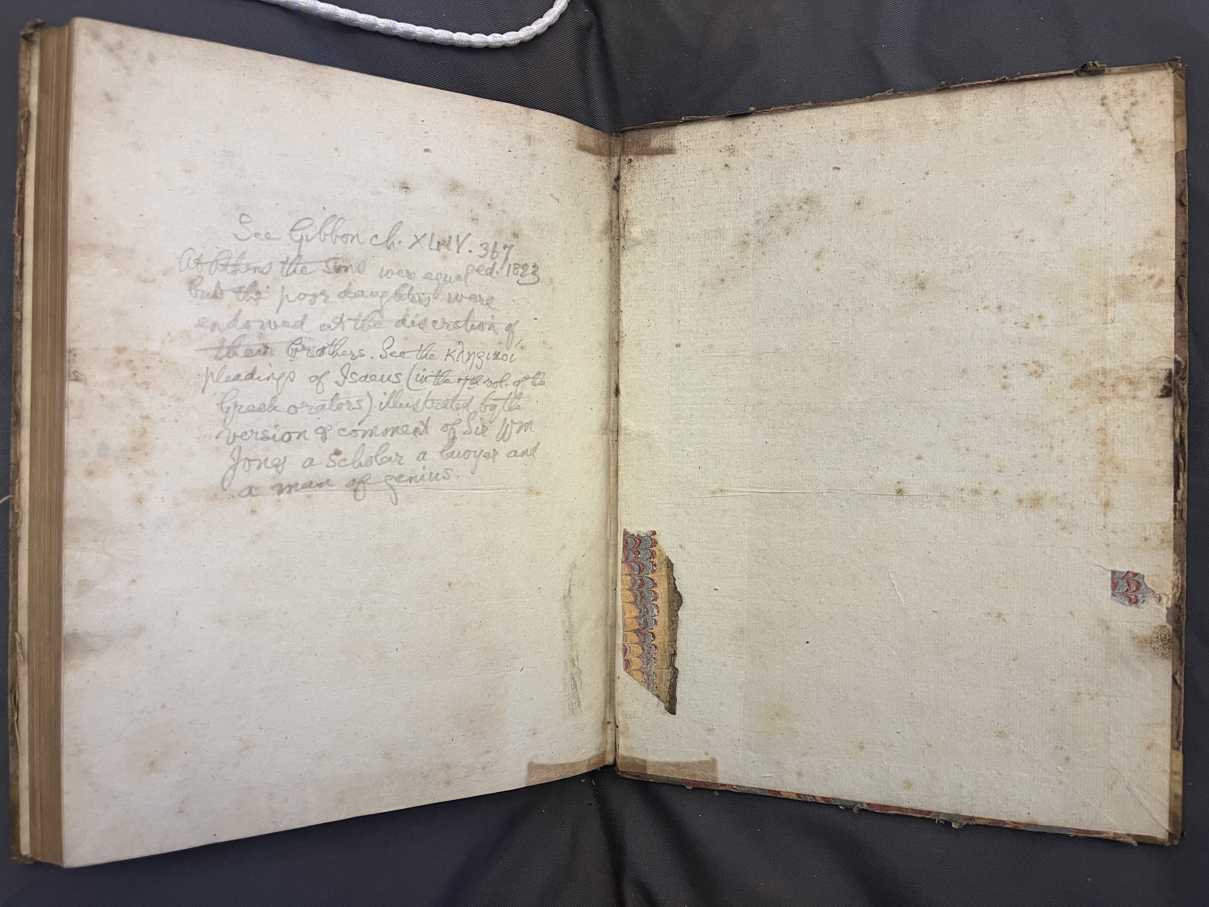 See Gibbon ch. XLIV. 367
ed. 1823
At Athens the Sons were equal
but the poor daughters were
endowed at the discretion of
their brothers. See the κληρικοί
pleadings of Isaeus (in the 7th vol. of the
Greek orators) illustrated by the
version & comment of Sir Wm
Jones a scholar a lawyer and
a man of genius.